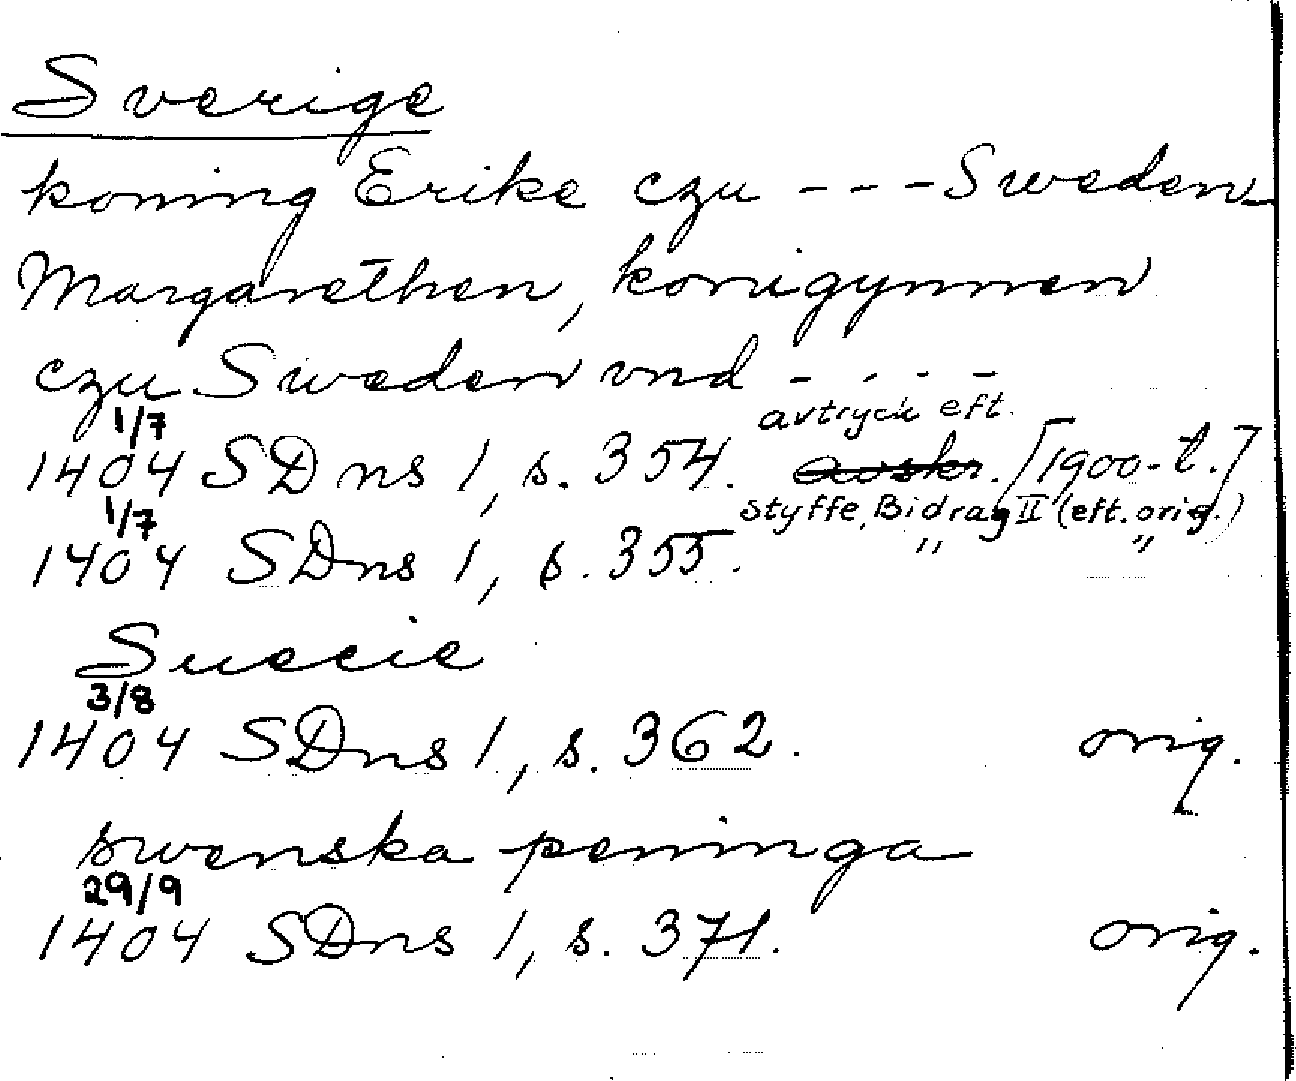 Sverige
koning Erike czu - - - Sweden
Margarethen, konigynnen
czu Sweden vnd - - - -
1/7 avtryck eft.
1404 SDns 1, s. 354. avskr. [1900-t.]
1/7 Styffe, Bidrag II (eft. orig.)
1404 SDns 1, s. 355. " "
Suecie
3/8
1404 SDns 1, s. 362. orig.
swenska peninga
29/9
1404 SDns 1, s. 371. orig.